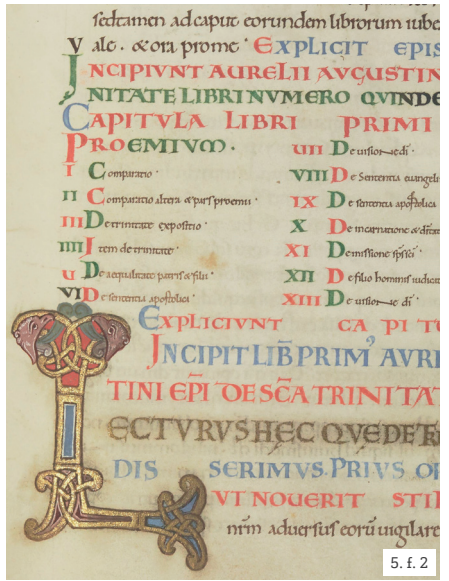 sedtamen ad caput eorundem librorum iube
Vale. & ora prome. EXPLICIT EPIS
INCIPIVNT AURELII AVGUSTIN
NITATE LIBRI NVMERO QVINDE
CAPITVLA LIBRI PRIMI
PROEMIVM.
I Comparatio
II Comparatio altera & pars proemii.
III De trinitate expositio
IIII Item de trinitate.
U De aequalitate patris & filii
VI De sententia apostolica
UII De uisione di
VIII De sententia euangeli
IX De sententia apostolica
X De incarnatione
XI De missione sps sci
XII De filio hominis iudicat
XIII De uisione di
EXPLICIUNT CAPITU
INCIPIT LIB̅ PRIM' AVRE
TINI EP̅I DE SC̅A TRINITAT
LECTVRVS HEC QVE DE TRI
DIS SERIMVS. PRIVS OP
UT NOUERIT STIL
nr̅m aduersus eoru̅ uigilare
5. f. 2